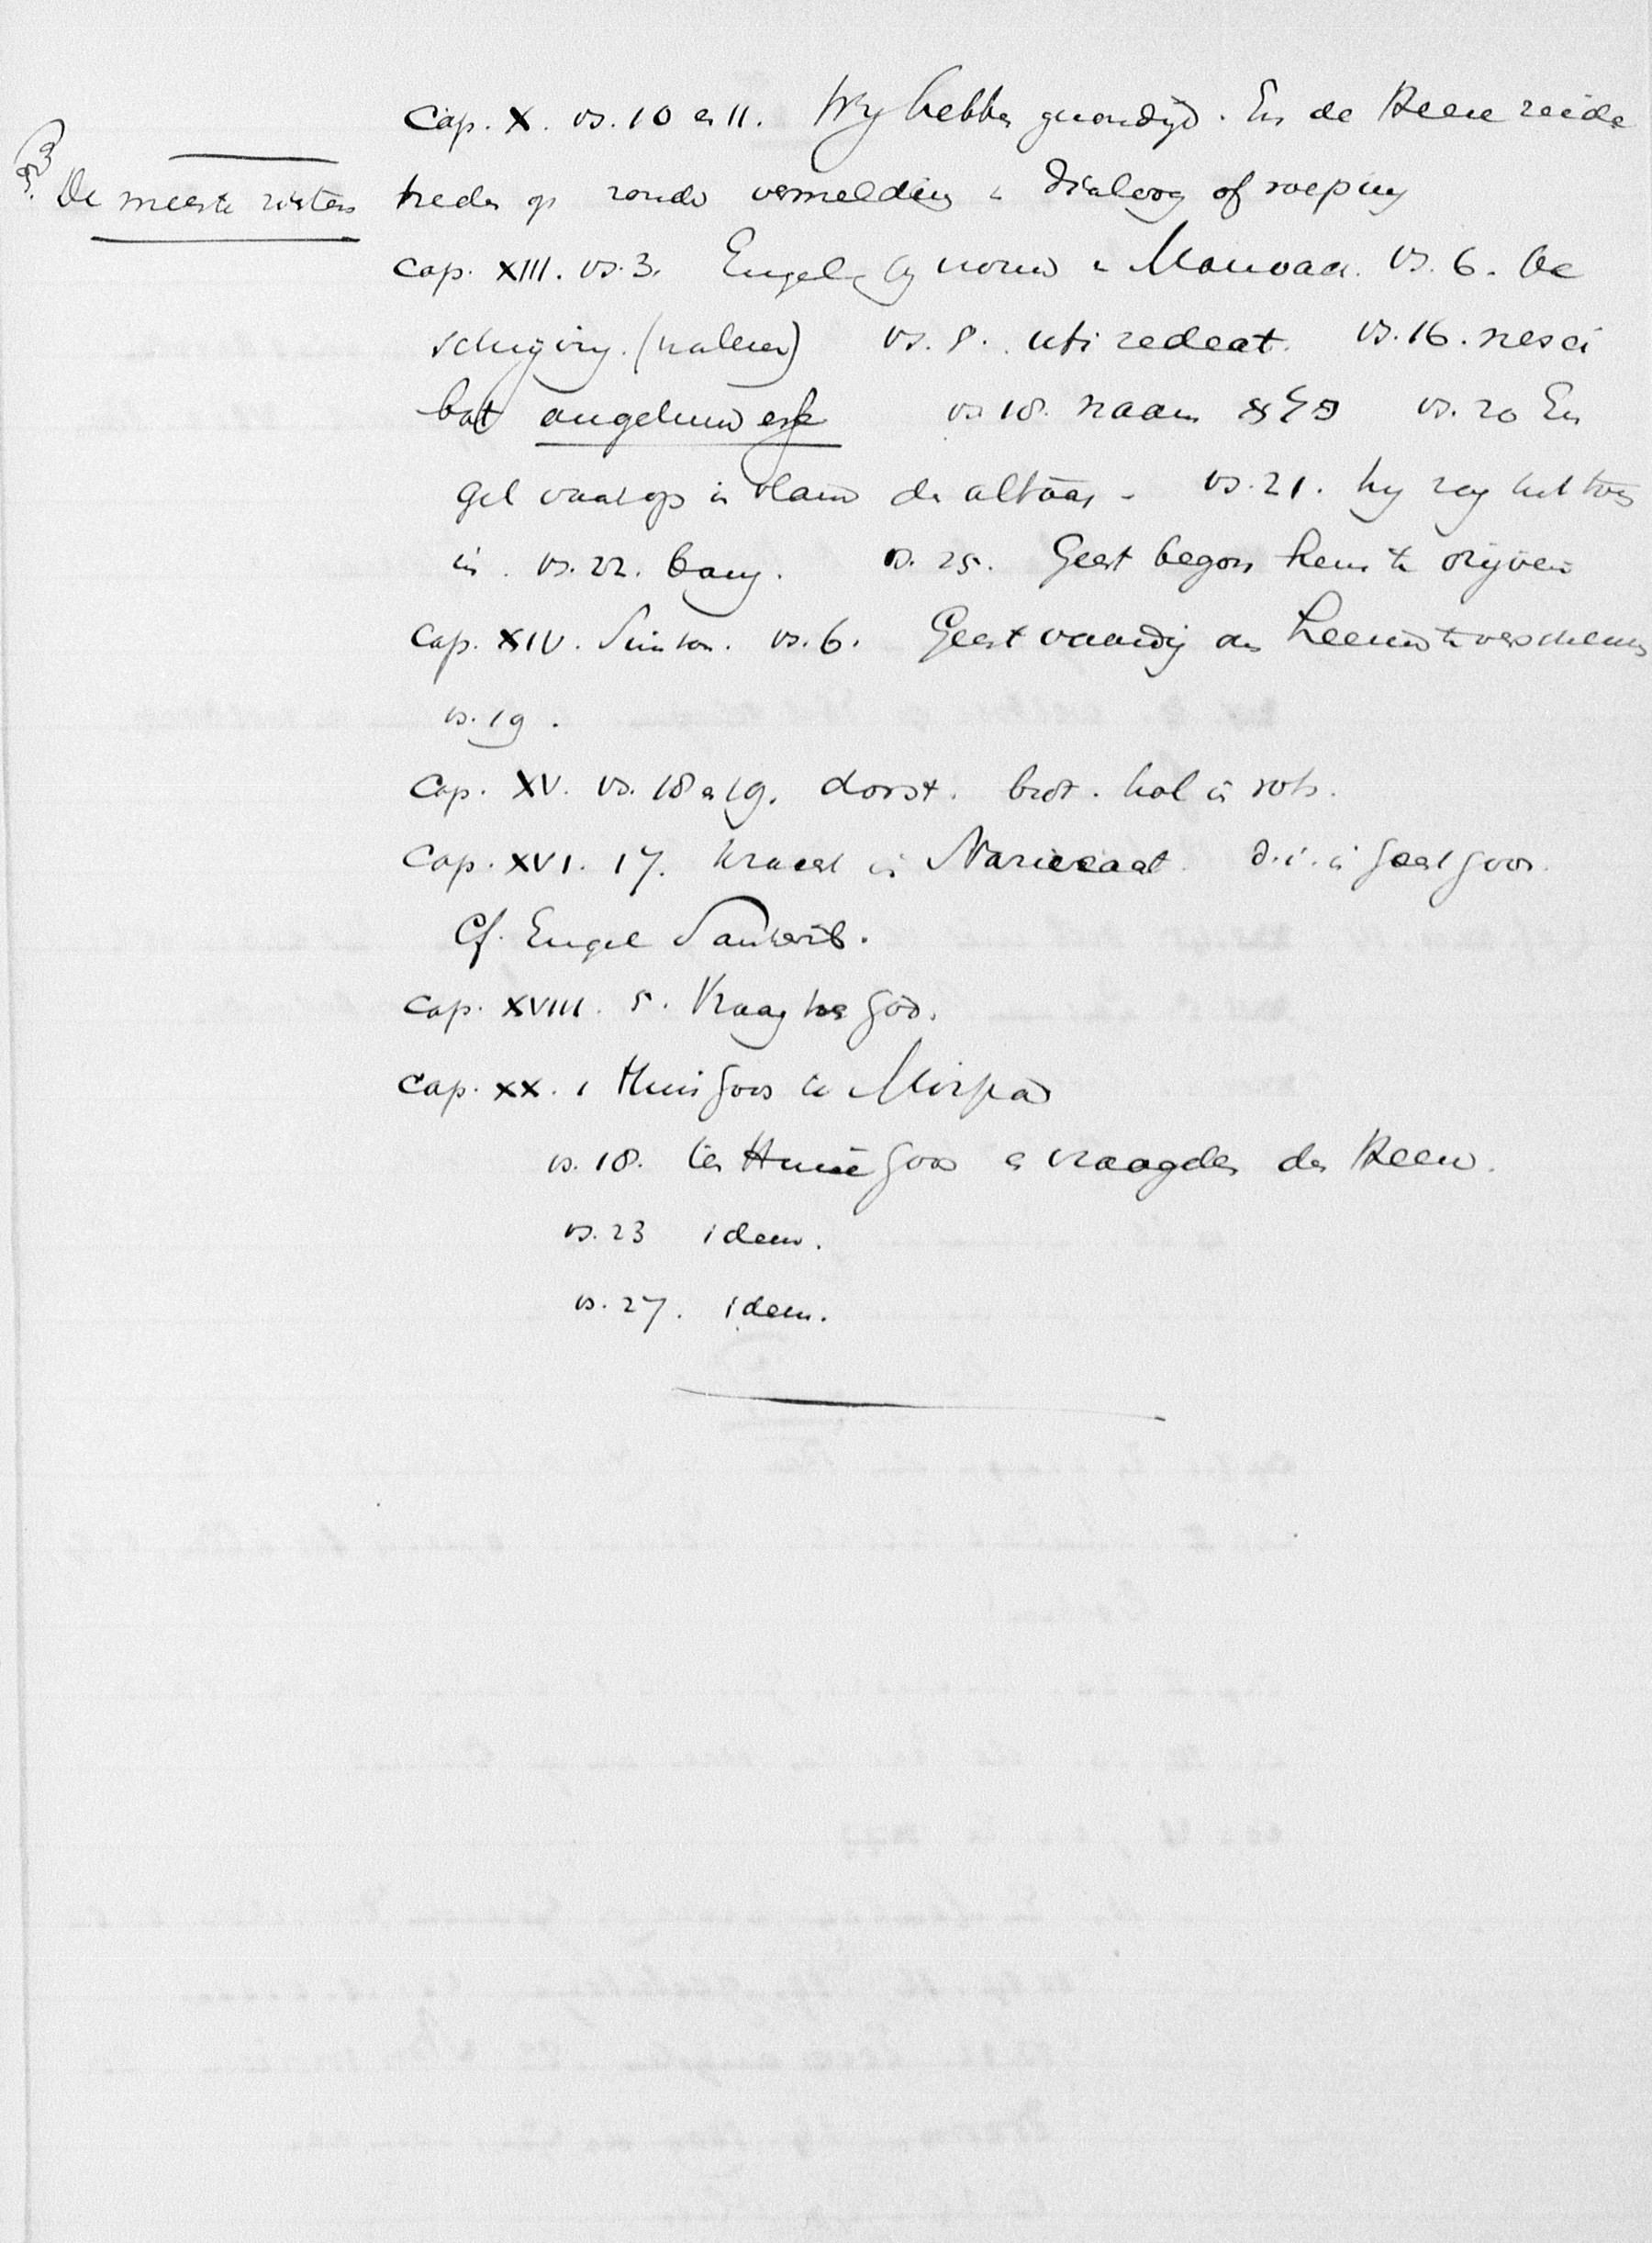 Cap. X. vs. 10 en 11. Wy hebben gezondigd. En de Heere zeide
NB. De meeste richters treden op zonder vermelding v. dialoog of roeping
Cap. XIII. vs. 3. Engel by vrouw v. Manoach. vs. 6. Be
schryving. (nalezen) vs. 8. uti redeat. vs. 16. nesci
bat angelum esse vs. 18. naam פלא vs. 20 En
gel vaart op in vlam der altaar. vs. 21. hy zag het toen
in. vs. 22. bang. vs. 25. Geest begon hem te dryven
Cap. XIV. Simson. vs. 6. Geest vaardig om Leeuw te verscheuren
vs. 19.
Cap. XV. vs. 18 en 19. dorst. hol in rots.
Cap. XVI. 17. kracht in Nazireaat. d.i. in Geest Gods.
Cf. Engel Sanherib.
Cap. XVIII. 5. Vraag her God.
Cap. XX. 1 Huis Gods te Mizpa
vs. 18. ten Huize Gods en vraagden den Heere.
vs. 23 idem.
vs. 27. idem.